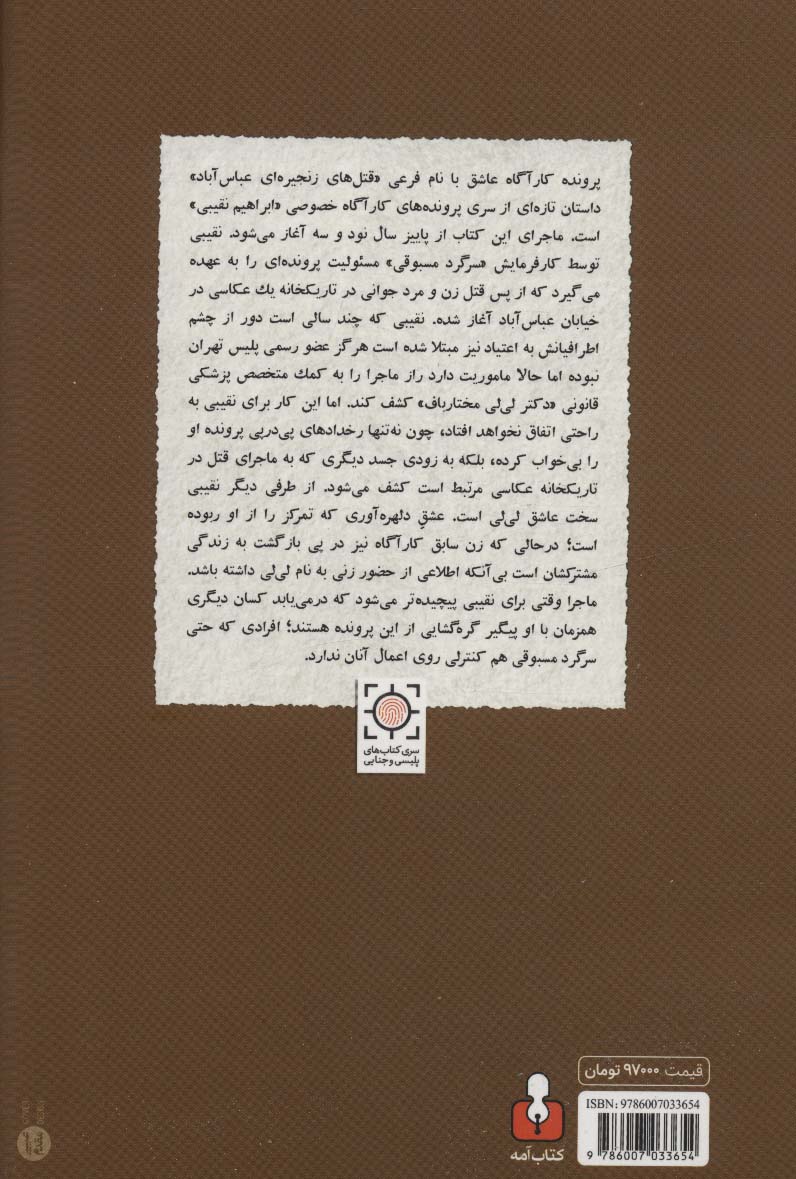 پرونده کارآگاه عاشق با نام فرعی «قتل‌های زنجیره‌ای عباس‌آباد»
داستان تازه‌ای از سری پرونده‌های کارآگاه خصوصی «ابراهیم نقیبی»
است. ماجرای این کتاب از پاییز سال نود و سه آغاز می‌شود. نقیبی
توسط کارفرمایش «سرگرد مسبوقی» مسئولیت پرونده‌ای را به عهده
می‌گیرد که از پس قتل زن و مرد جوانی در تاریکخانه یك عکاسی در
خیابان عباس‌آباد آغاز شده. نقیبی که چند سالی است دور از چشم
اطرافیانش به اعتیاد نیز مبتلا شده است هرگز عضو رسمی پلیس تهران
نبوده اما حالا ماموریت دارد راز ماجرا را به کمك متخصص پزشکی
قانونی «دکتر لی‌لی مختارباف» کشف کند. اما این کار برای نقیبی به
راحتی اتفاق نخواهد افتاد، چون نه‌تنها رخدادهای پی‌درپی پرونده او
را بی‌خواب کرده، بلکه به زودی جسد دیگری که به ماجرای قتل در
تاریکخانه عکاسی مرتبط است کشف می‌شود. از طرفی دیگر نقیبی
سخت عاشق لی‌لی است. عشقِ دلهره‌آوری که تمرکز را از او ربوده
است؛ درحالی که زن سابق کارآگاه نیز در پی بازگشت به زندگی
مشترکشان است بی‌آنکه اطلاعی از حضور زنی به نام لی‌لی داشته باشد.
ماجرا وقتی برای نقیبی پیچیده‌تر می‌شود که درمی‌یابد کسان دیگری
همزمان با او پیگیر گره‌گشایی از این پرونده هستند؛ افرادی که حتی
سرگرد مسبوقی هم کنترلی روی اعمال آنان ندارد.
سری کتاب‌های
پلیسی و جنایی
قیمت ۹۷۰۰۰ تومان
ISBN: 9786007033654
9 786007 033654
کتاب آمه